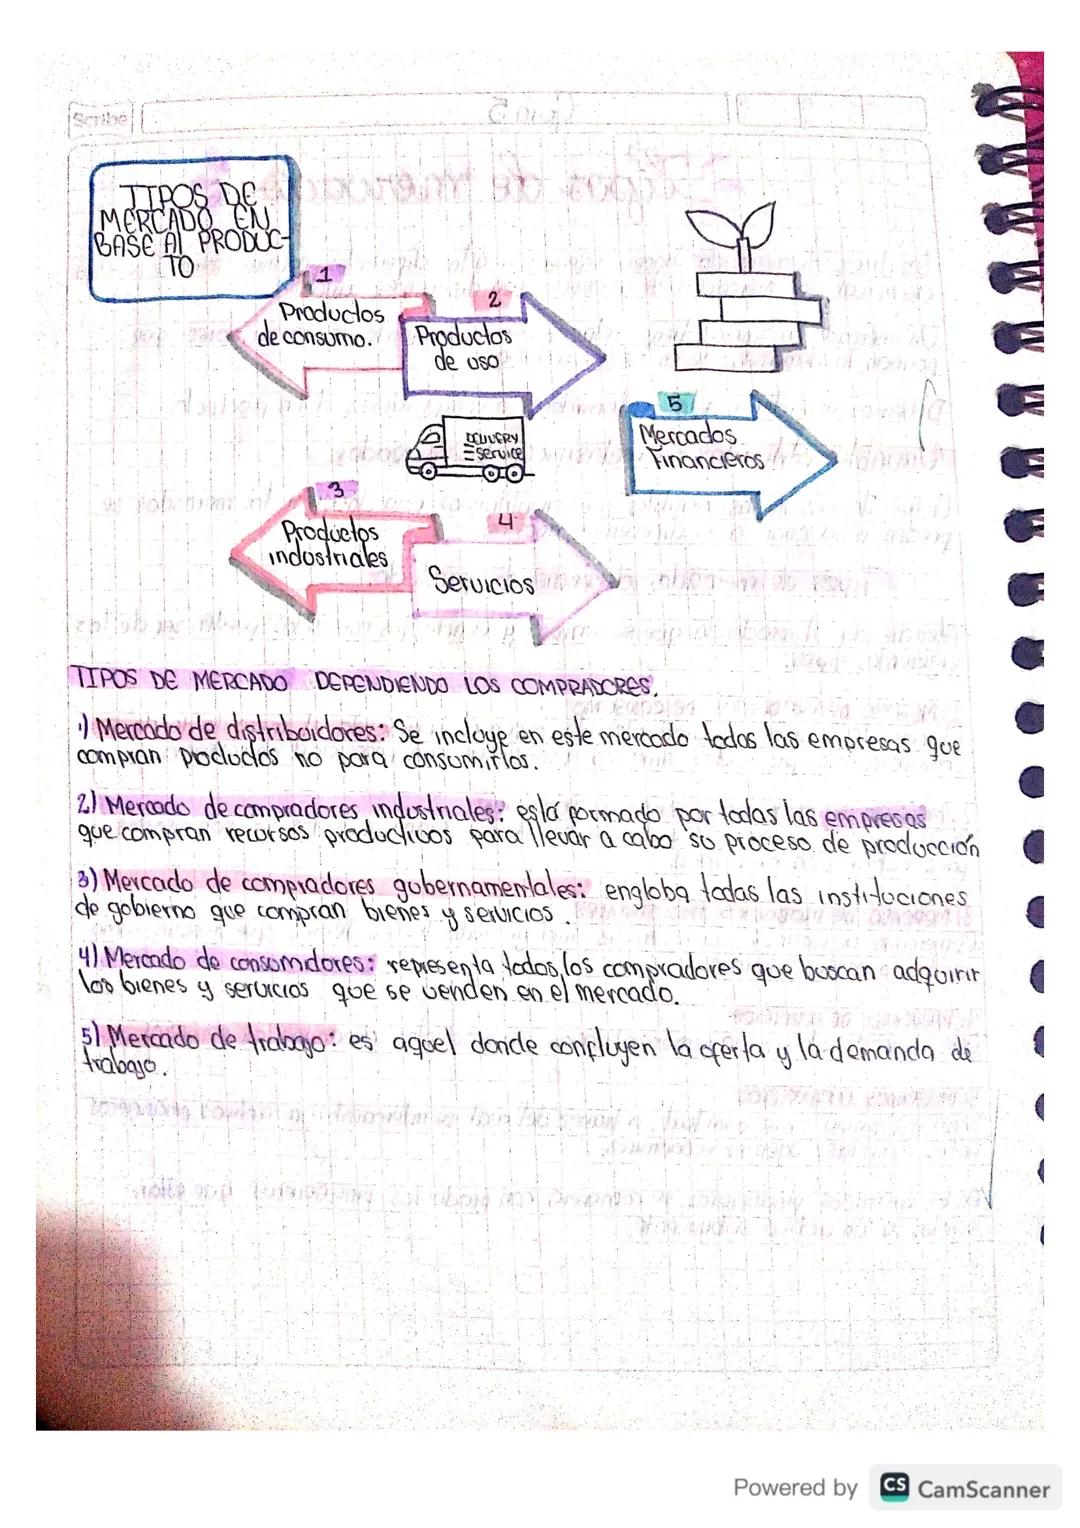 Scribe
TIPOS DE
MERCADO EN
BASE AL PRODUC-
TO
1
Productos
de consumo.
2
Productos
de uso
5
Mercados
Financieros
DELIVERY
Service
3
Productos
industriales
4
Servicios
TIPOS DE MERCADO DEPENDIENDO LOS COMPRADORES.
1) Mercado de distribuidores: Se incluye en este mercado todas las empresas que
compran productos no para consumirlos.
2) Mercado de compradores industriales: está formado por todas las empresas
que compran recursos productivos para llevar a cabo su proceso de producción
3) Mercado de compradores gubernamentales: engloba todas las instituciones
de gobierno que compran bienes y servicios.
4) Mercado de consumidores: representa todos los compradores que buscan adquirir
los bienes y servicios que se venden en el mercado.
5) Mercado de trabajo: es aquel donde confluyen la oferta y la demanda de
trabajo.
Powered by CS CamScanner